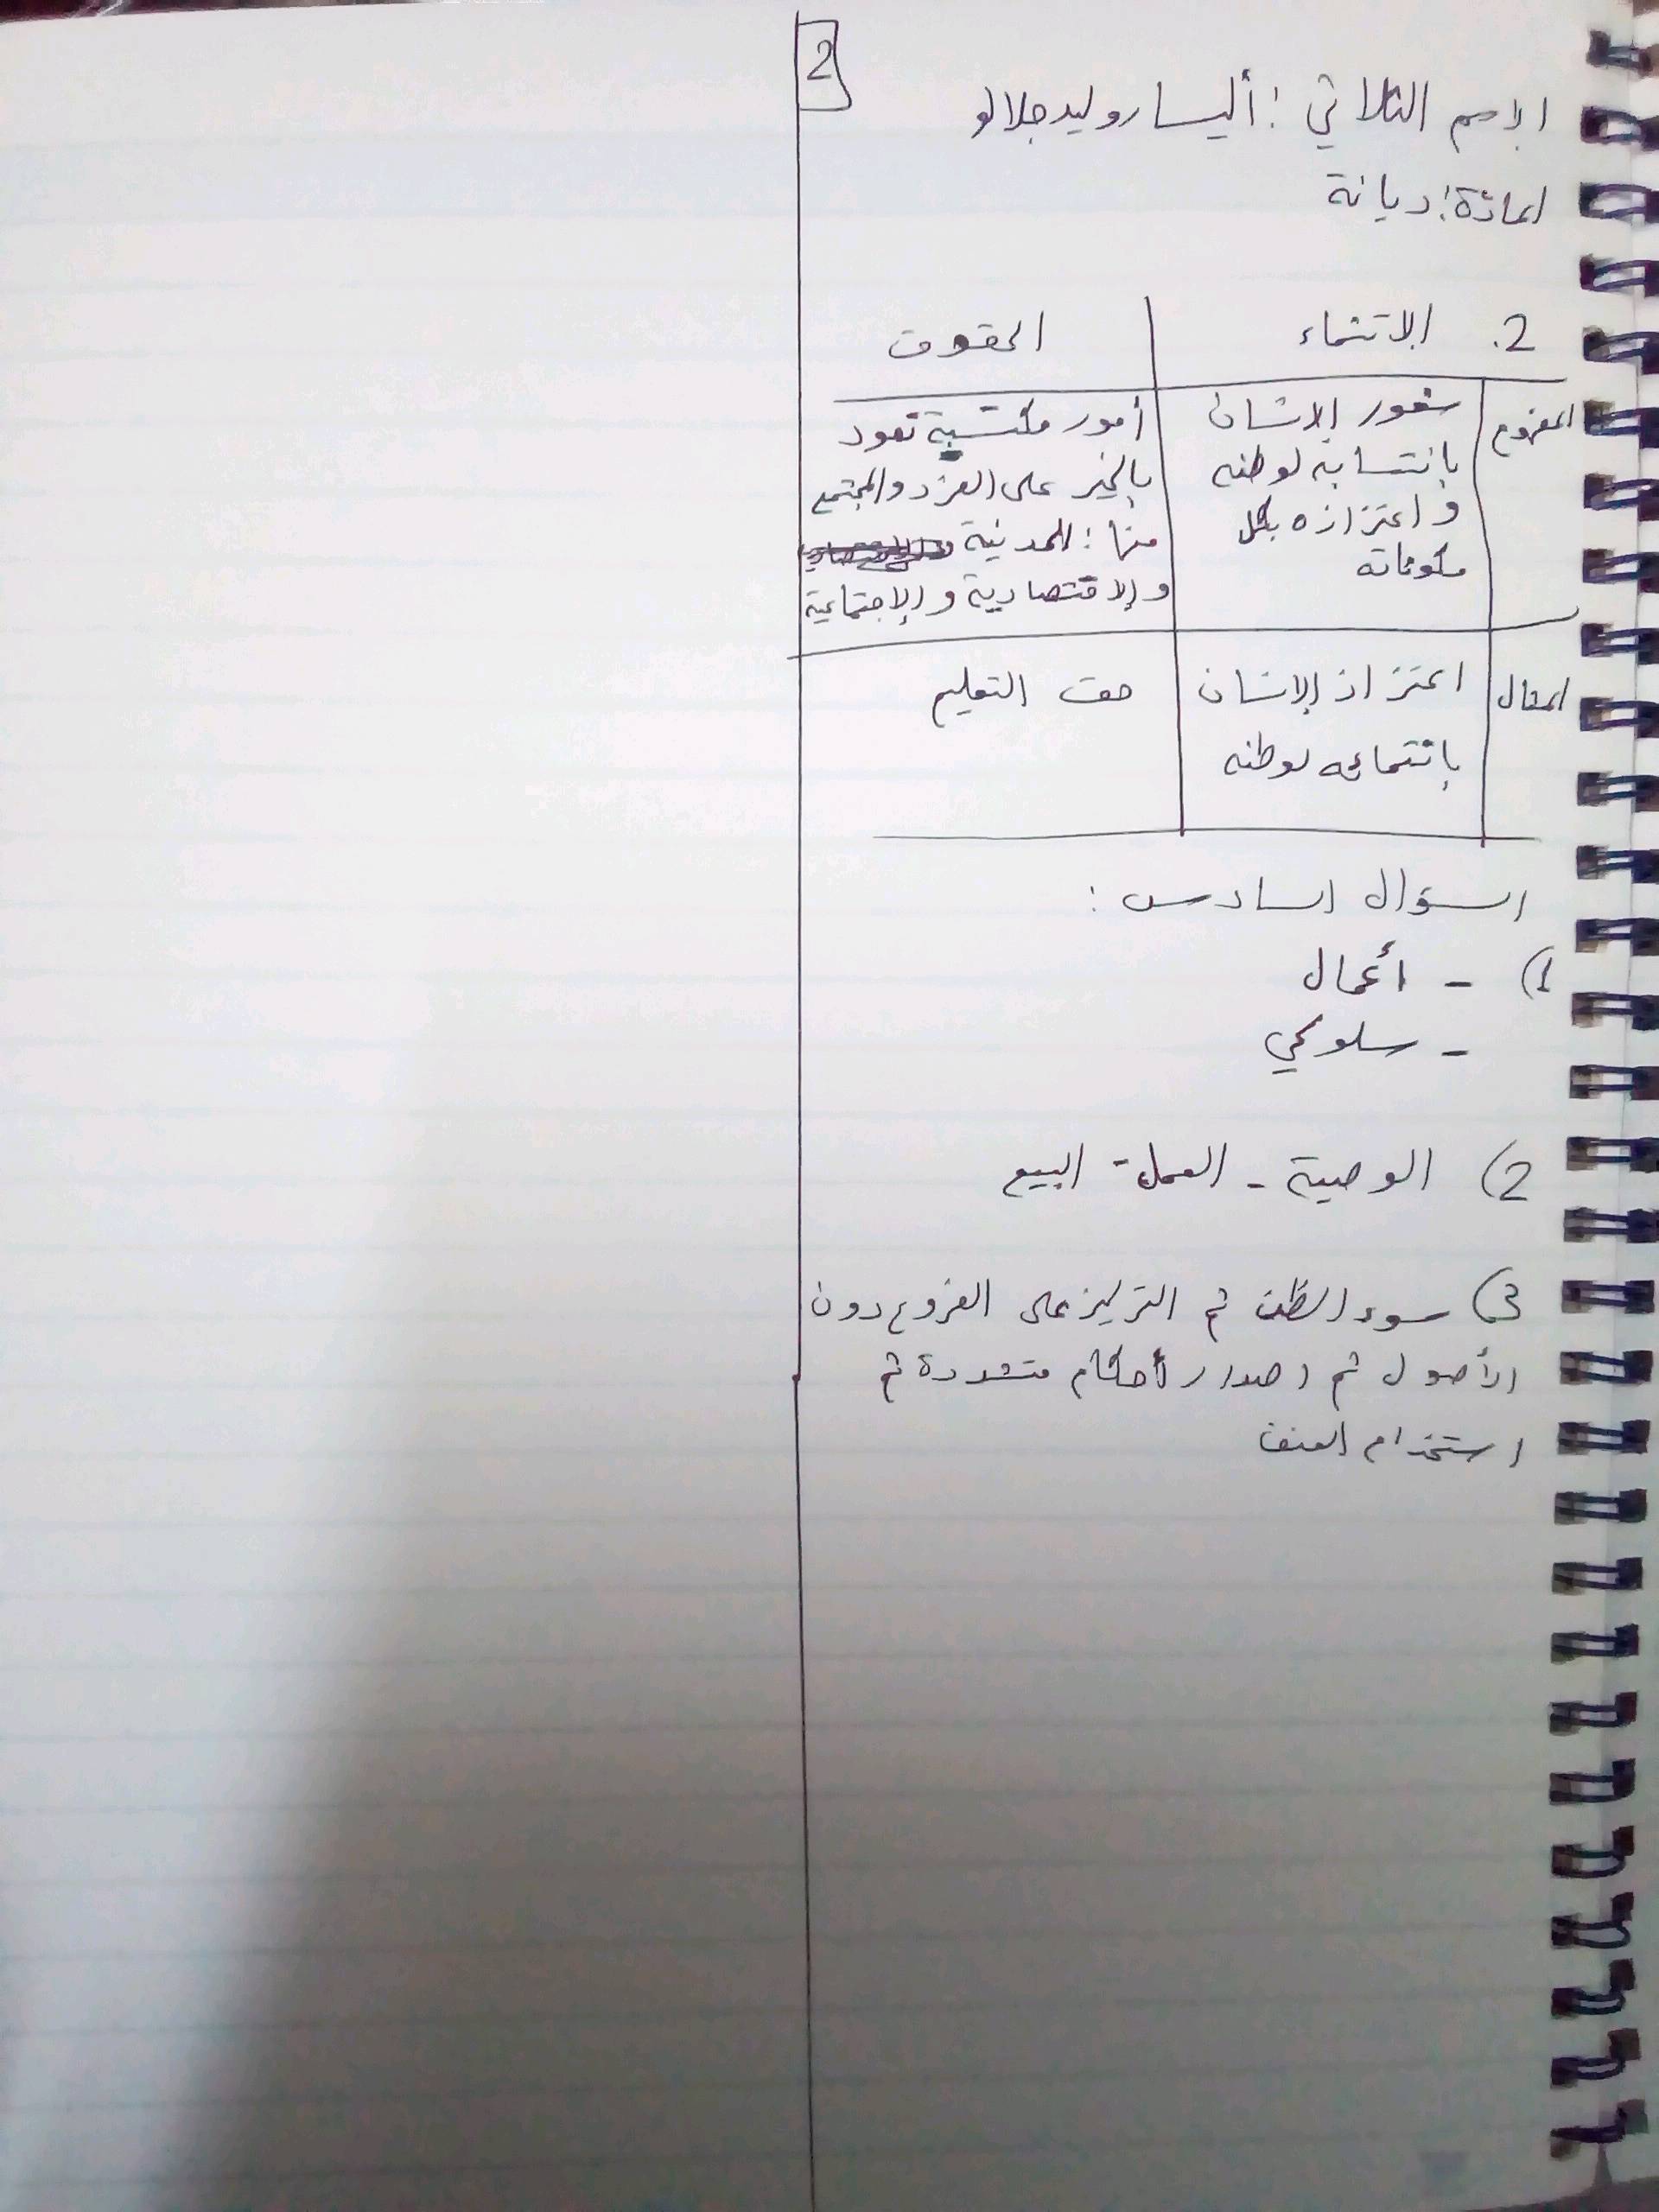 2
الاسم الثلاثي : أليسار وليد جلالو
المادة : ديانة
2. الانتماء | الحقوق
المفهوم | شعور الانسان | أمور مكتسبة تعود
بانتسابه لوطنه | بالخير على الفرد والمجتمع
واعتزازه بكل | منها : المدنية
مكوناته | والاقتصادية والإجتماعية
المثال | اعتزاز الإنسان | حق التعليم
بانتمائه لوطنه
السؤال السادس :
1) - أعمال
- سلوكي
2) الوصية - العمل - البيع
3) سوء الظن ثم التركيز على الفروع دون
الأصول ثم اصدار أحكام متشددة ثم
استخدام العنف